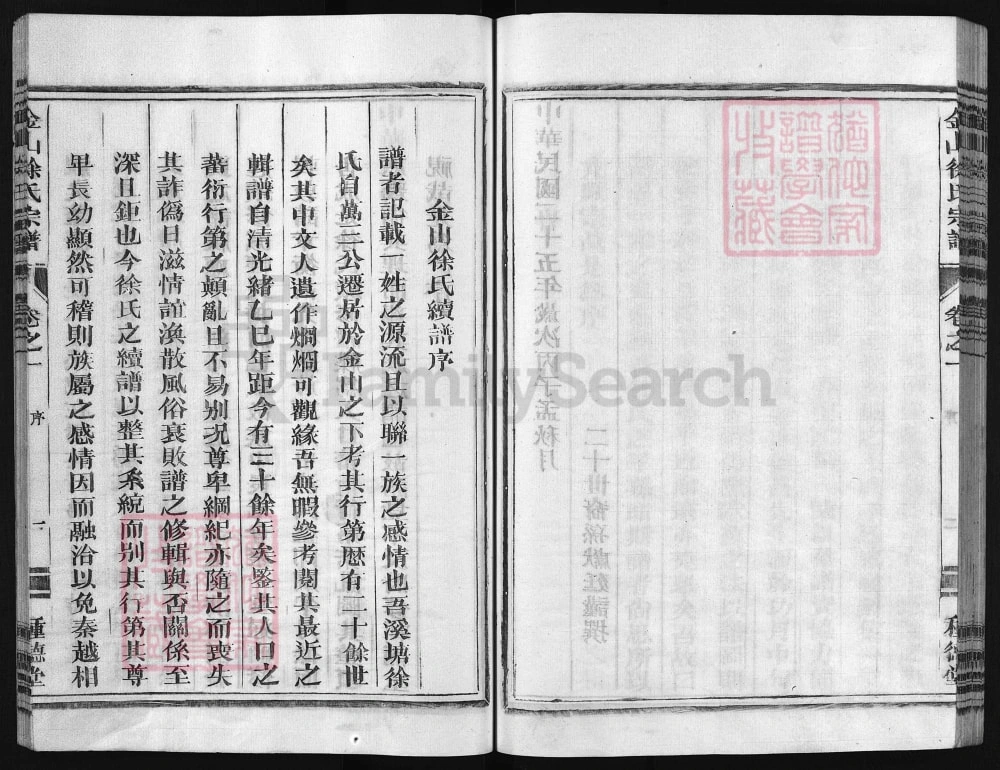 金山徐氏宗譜
卷之一
種德堂
猶他家
譜學會
收藏
金山徐氏續譜序
譜者記載一姓之源流且以聯一族之感情也吾溪塘徐
氏自萬三公遷居於金山之下考其行第歷有二十餘世
矣其中文人遺作燗燗可觀緣吾無暇參考閱其最近之
輯譜自清光緒乙巳年距今有三十餘年矣鑒其人口之
蕃衍行第之顛亂且不易别况尊卑綱紀亦隨之而喪失
其詐僞日滋情誼渙散風俗衰敗譜之修輯與否關係至
深且鉅也今徐氏之續譜以整其系統而别其行第其尊
卑長幼顯然可稽則族屬之感情因而融洽以免秦越相
金山徐氏宗譜
卷之一
序
一
種德堂
FamilySearch
中華民國二十五年歲次丙子孟秋月
二十世裔孫獻廷謹撰